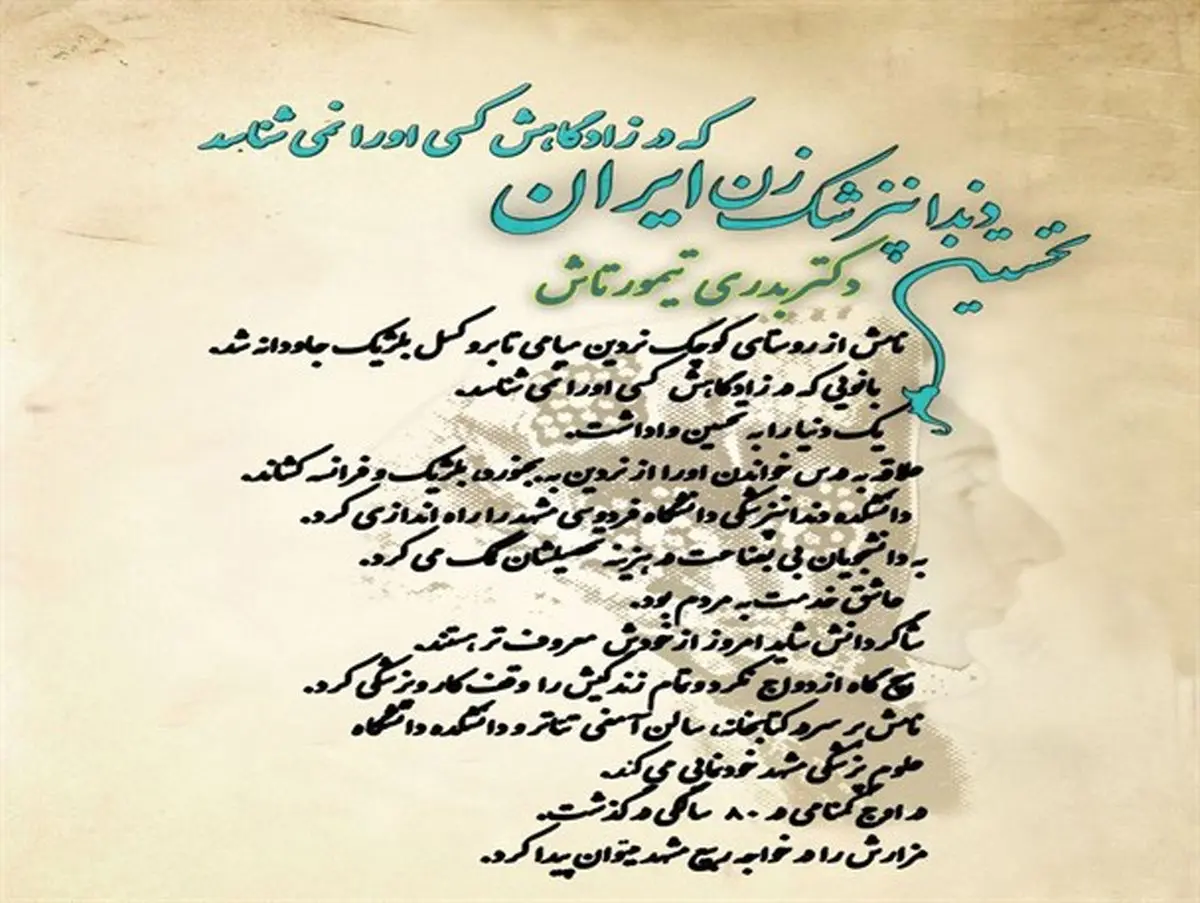 نخستین دندانپزشک زن ایران
که در زادگاهش کسی او را نمی شناسد
دکتر بدری تیمورتاش
نامش از روستای کوچک نردین میامی تا بروکسل بلژیک جاودانه شد.
بانویی که در زادگاهش کسی او را نمی شناسد.
یک دنیا را به تحسین واداشت.
علاقه به درس خواندن او را از نردین به بجنورد، بلژیک و فرانسه کشاند.
دانشکده دندانپزشکی دانشگاه فردوسی مشهد را راه اندازی کرد.
به دانشجویان بی بضاعت در هزینه تحصیلشان کمک می کرد.
عاشق خدمت به مردم بود.
شاگردانش شاید امروز از خودش معروف تر هستند.
هیچ گاه ازدواج نکرد و تمام زندگیش را وقف کار و پزشکی کرد.
نامش بر سردر کتابخانه، سالن آمفی تئاتر و دانشکده دانشگاه
علوم پزشکی مشهد خودنمایی می کند.
در اوج گمنامی در ۸۰ سالگی درگذشت.
مزارش را در خواجه ربیع مشهد میتوان پیدا کرد.